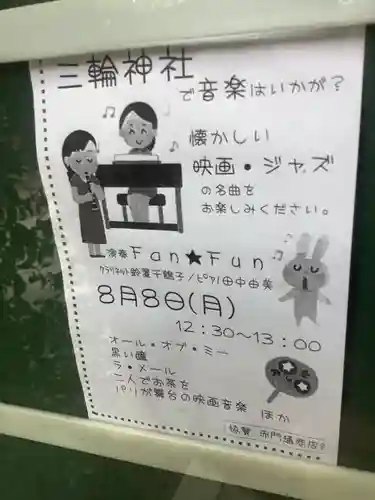 三輪神社
で音楽はいかが?
懐かしい
映画・ジャズ
の名曲を
お楽しみください。
演奏 Fan★Fun
クラリネット 鈴置千鶴子/ピアノ田中由美
8月8日(月)
12:30〜13:00
オール・オブ・ミー
黒い瞳
ラ・メール
二人でお茶を
パリが舞台の映画音楽 ほか
協賛 赤門通商店